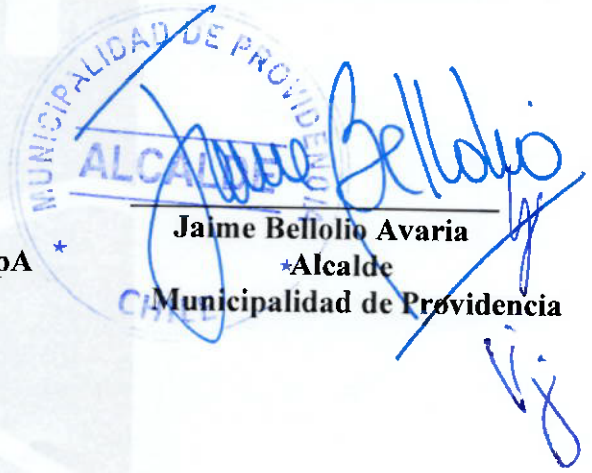 MUNICIPALIDAD DE PROVIDENCIA
ALCALDE
Jaime Bellolio
Jaime Bellolio Avaria
pA
Alcalde
CHILE
Municipalidad de Providencia